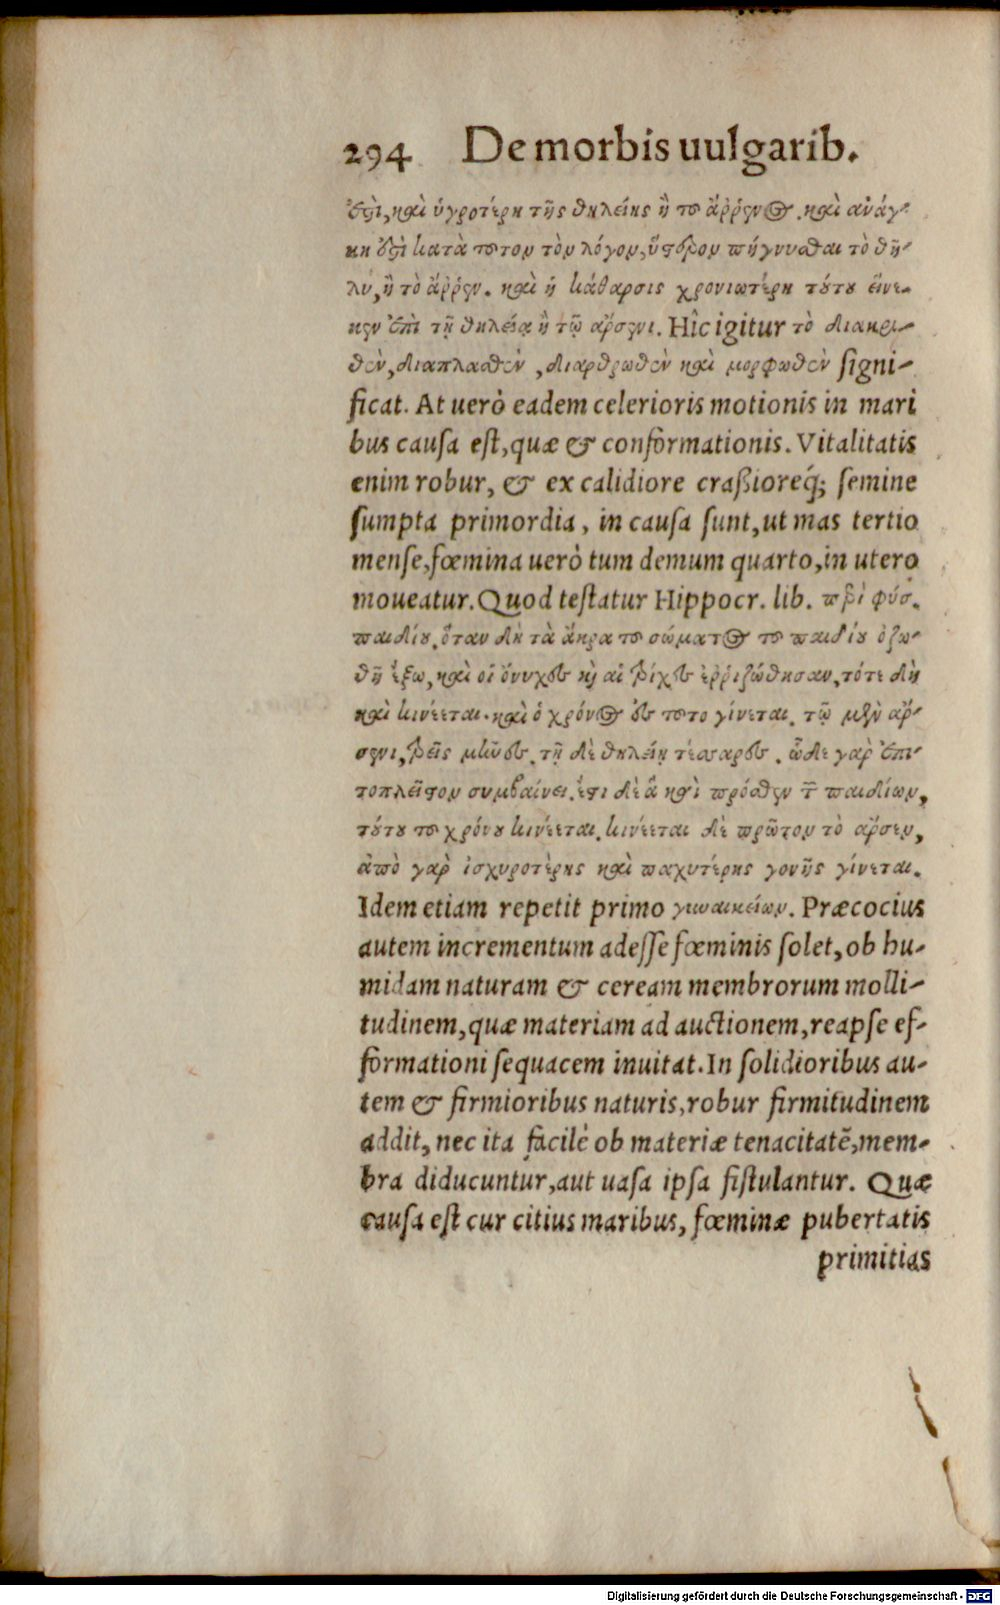 294 De morbis uulgarib.
ἐστὶ, καὶ ὑγροτέρη τῆς θηλείης ἢ τοῦ ἄῤῥενος. καὶ ἀνάγ-
κη ἐστὶ κατὰ τοῦτον τὸν λόγον, ὕστερον πήγνυσθαι τὸ θῆ-
λυ, ἢ τὸ ἄῤῥεν. καὶ ἡ κάθαρσις χρονιωτέρη τούτου εἵνε-
κεν ἐπὶ τῇ θηλείᾳ ἢ τῷ ἄρσενι. Hîc igitur τὸ διακρι-
θὲν, διαπλασθὲν, διαρθρωθὲν καὶ μορφωθὲν signi-
ficat. At uerò eadem celerioris motionis in mari
bus causa est, quæ & conformationis. Vitalitatis
enim robur, & ex calidiore craßioreq́; semine
sumpta primordia, in causa sunt, ut mas tertio
mense, fœmina uerò tum demum quarto, in utero
moueatur. Quod testatur Hippocr. lib. περὶ φύσ.
παιδίου. ὅταν δὴ τὰ ἄκρα τοῦ σώματος τοῦ παιδίου ὀζω-
θῇ ἔξω, καὶ οἱ ὄνυχες καὶ αἱ τρίχες ἐῤῥιζώθησαν, τότε δὴ
καὶ κινέεται. καὶ ὁ χρόνος ἐς τοῦτο γίνεται. τῷ μὲν ἄρ-
σενι, τρεῖς μῆνες. τῇ δὲ θηλείῃ τέσσαρες. ὧδε γὰρ ἐπι-
τοπλεῖστον συμβαίνει. ἔστι δὲ ἃ καὶ πρόσθεν τῶν παιδίων,
τούτου τοῦ χρόνου κινέεται. κινέεται δὲ πρῶτον τὸ ἄρσεν,
ἀπὸ γὰρ ἰσχυροτέρης καὶ παχυτέρης γονῆς γίνεται.
Idem etiam repetit primo γυναικείων. Præcocius
autem incrementum adesse fœminis solet, ob hu-
midam naturam & ceream membrorum molli-
tudinem, quæ materiam ad auctionem, reapse ef-
formationi sequacem inuitat. In solidioribus au-
tem & firmioribus naturis, robur firmitudinem
addit, nec ita facilè ob materiæ tenacitatẽ, mem-
bra diducuntur, aut uasa ipsa fistulantur. Quæ
causa est cur citius maribus, fœminæ pubertatis
primitias
Digitalisierung gefördert durch die Deutsche Forschungsgemeinschaft - DFG